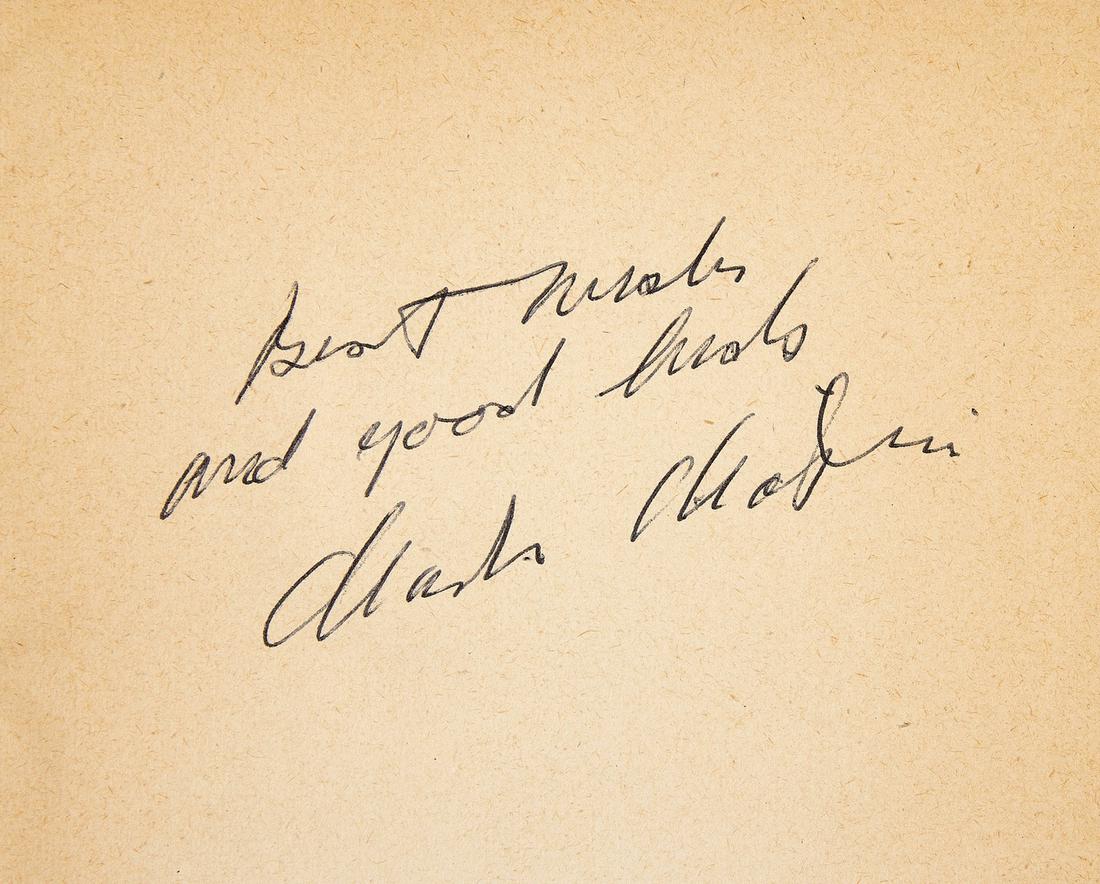 Best wishes
and good luck
Charlie Chaplin